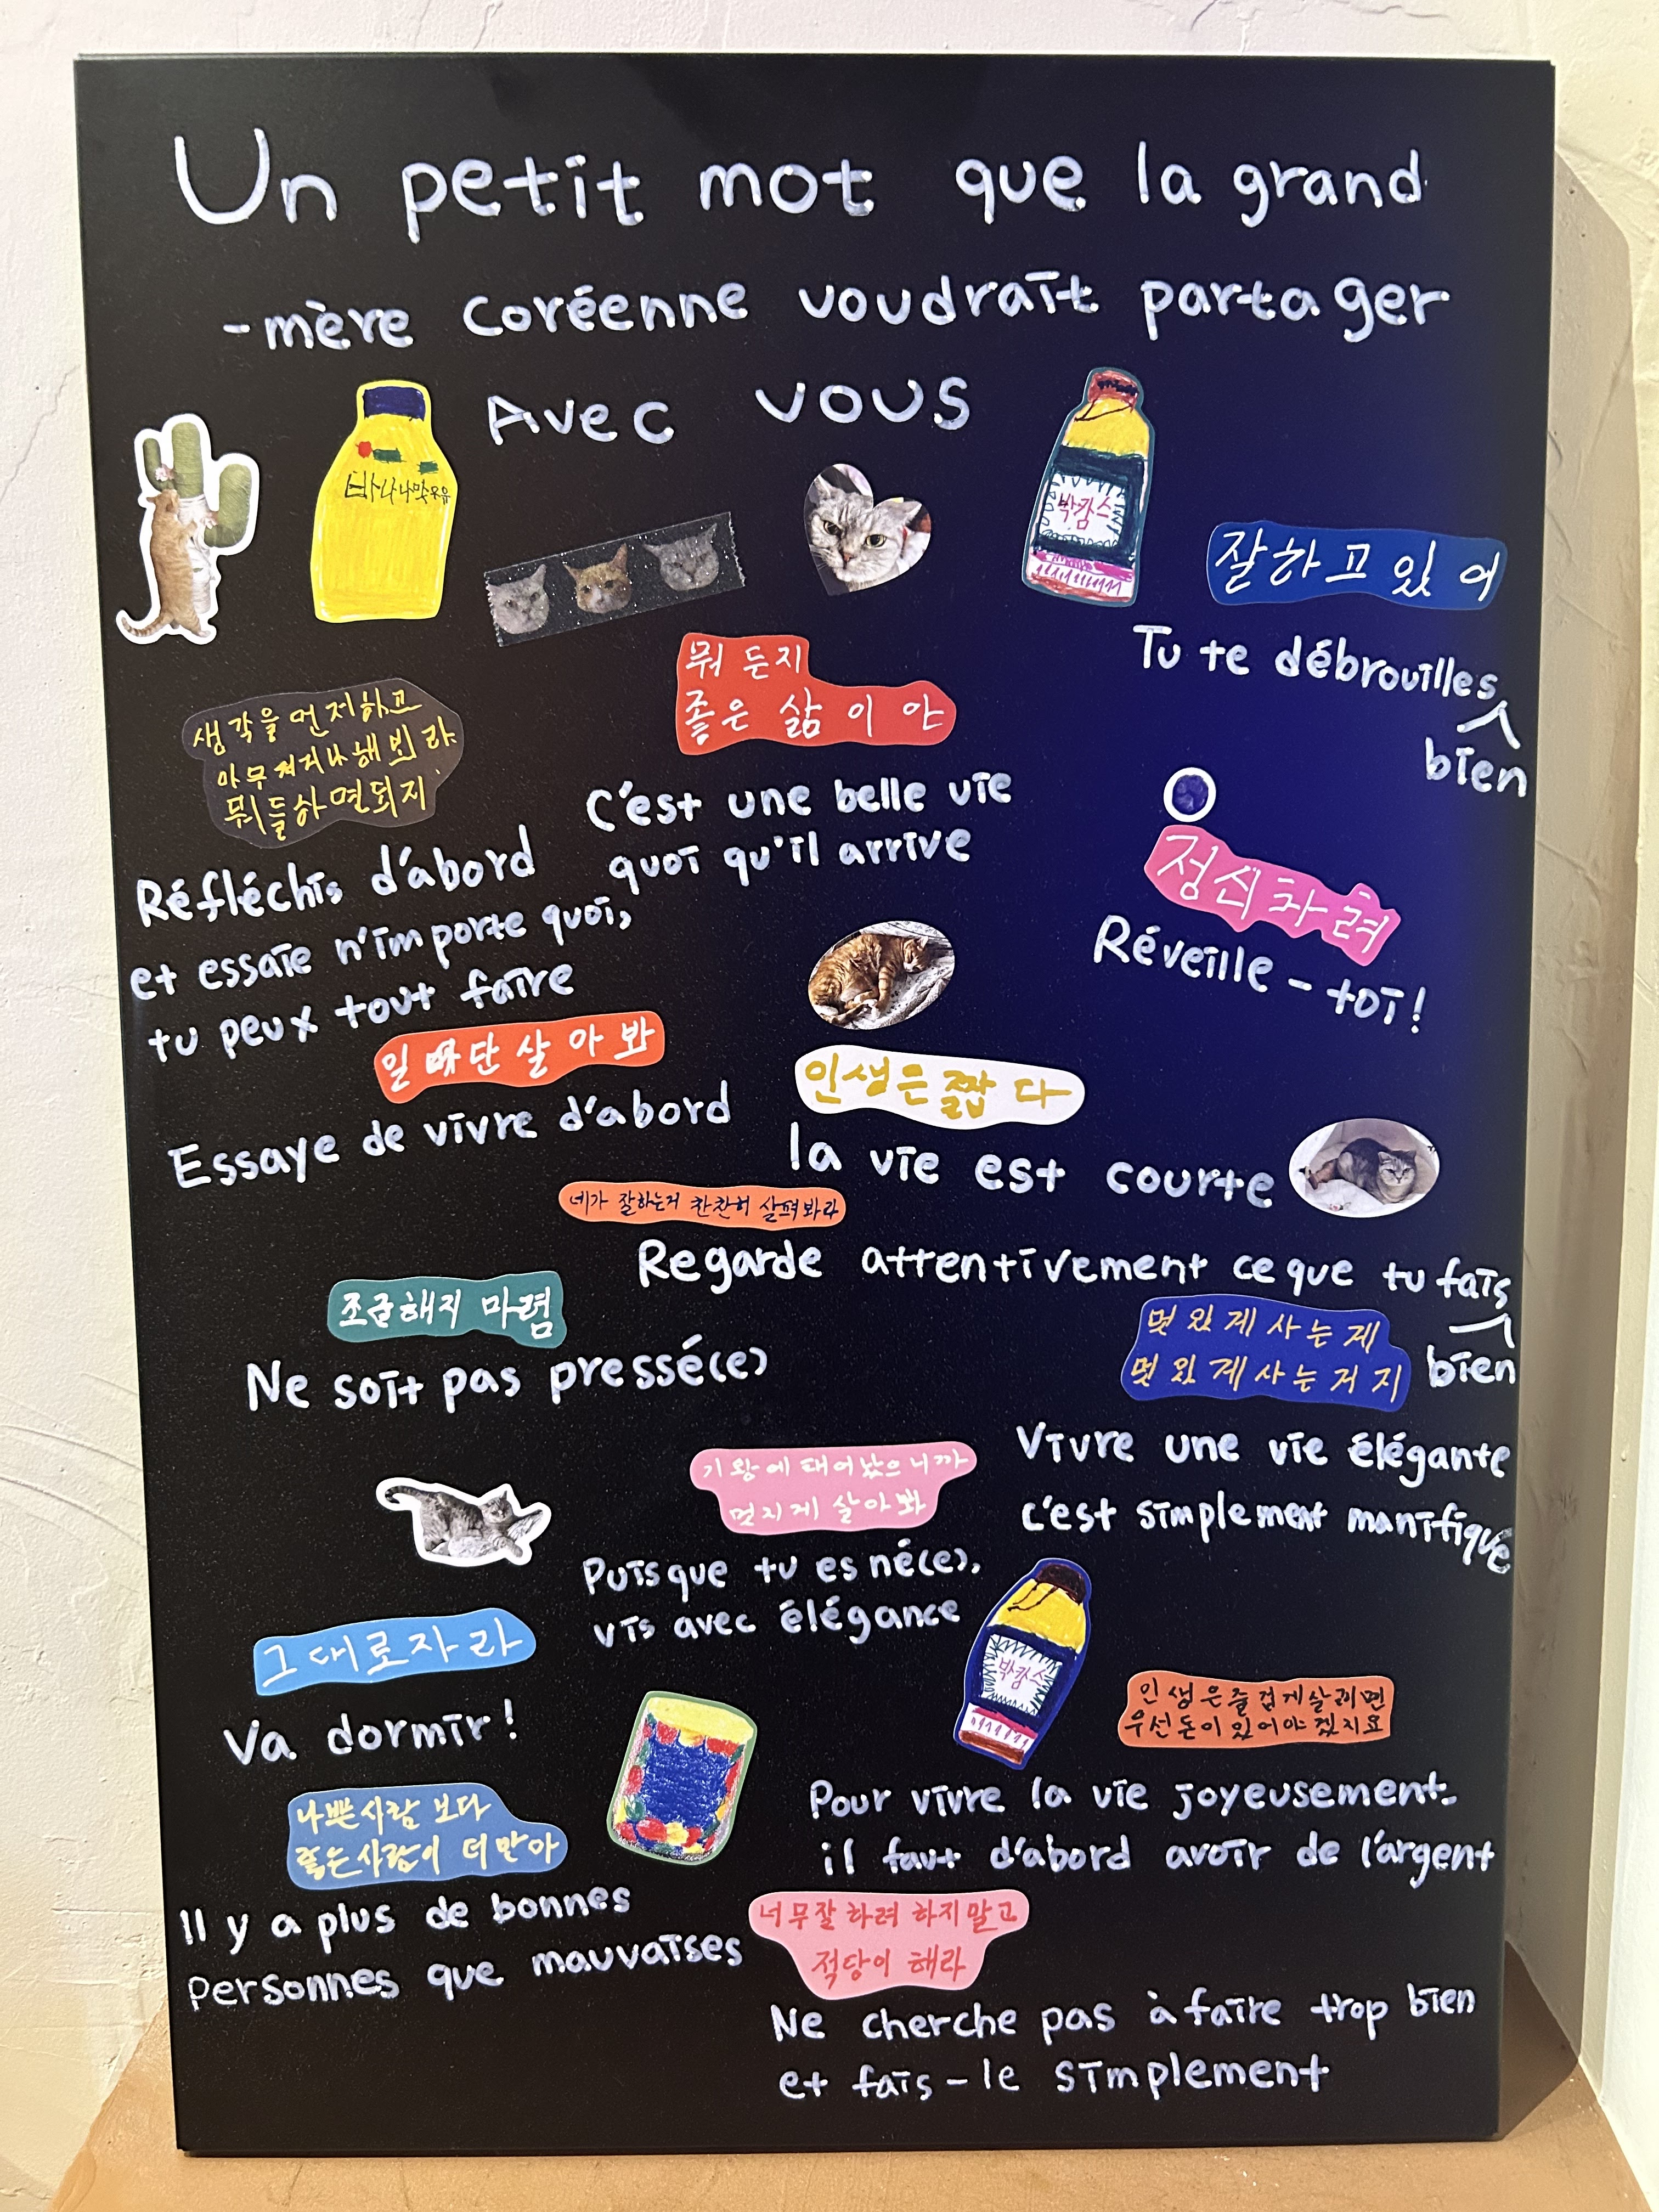 Un petit mot que la grand
-mère coréenne voudrait partager
Avec vous
바나나맛우유
박캄스
잘하고 있어
Tu te débrouilles
bien
생각을 먼저하고
아무꺼지나해보라
뭐들하면되지
Réfléchis d'abord
et essaie n'importe quoi,
tu peux tout faire
뭐 든지
좋은 삶이야
C'est une belle vie
quoi qu'il arrive
정신차려
Réveille-toi!
일단 살아봐
Essaye de vivre d'abord
인생은 짧다
la vie est courte
네가 잘하는거 찬찬히 살펴봐라
Regarde attentivement ce que tu fais
bien
조급해지 마렴
Ne soit pas pressé(e)
멋있게 사는게
멋있게사는거지
Vivre une vie élégante
c'est simplement manifique
기왕에 태어났으니까
멋지게 살아봐
Puisque tu es né(e),
vis avec élégance
그대로자라
Va dormir!
박캄스
인생은즐겁게살려면
우선돈이있어야겠지요
Pour vivre la vie joyeusement.
il faut d'abord avoir de l'argent
나쁜사람 보다
좋는사람이 더 많아
Il y a plus de bonnes
personnes que mauvaises
너무잘 하려 하지말고
적당이 해라
Ne cherche pas à faire trop bien
et fais-le simplement